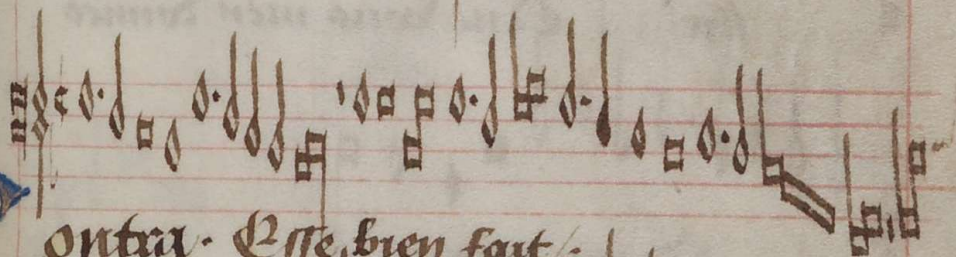 ontra. Esse bien fait /.